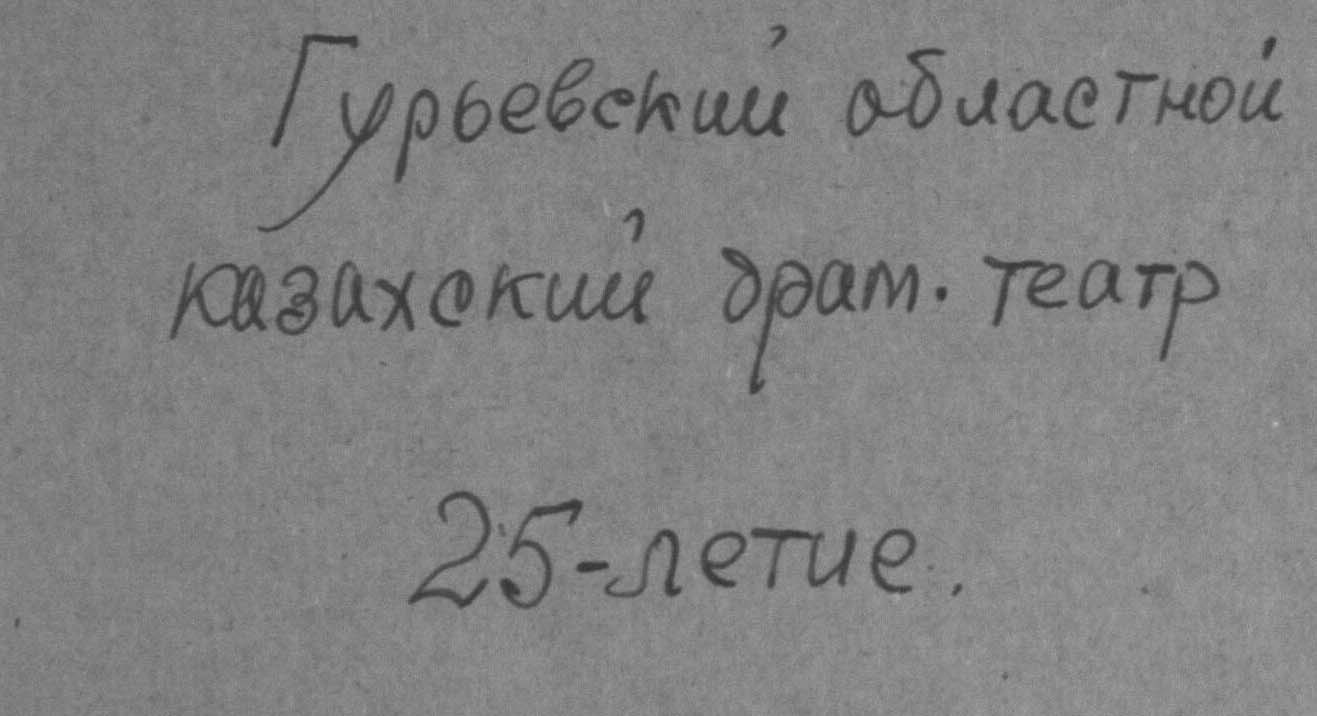 Гурьевский областной
казахский драт. театр
25-летие.